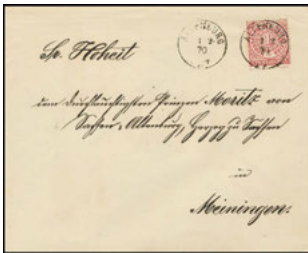 ALTENBURG
1 2
70
ALTENBURG
1 2
Sr. Hoheit
dem durchlauchtigsten Prinzen Moritz von
Sachsen-Altenburg, Herzog zu Sachsen
in
Meiningen.